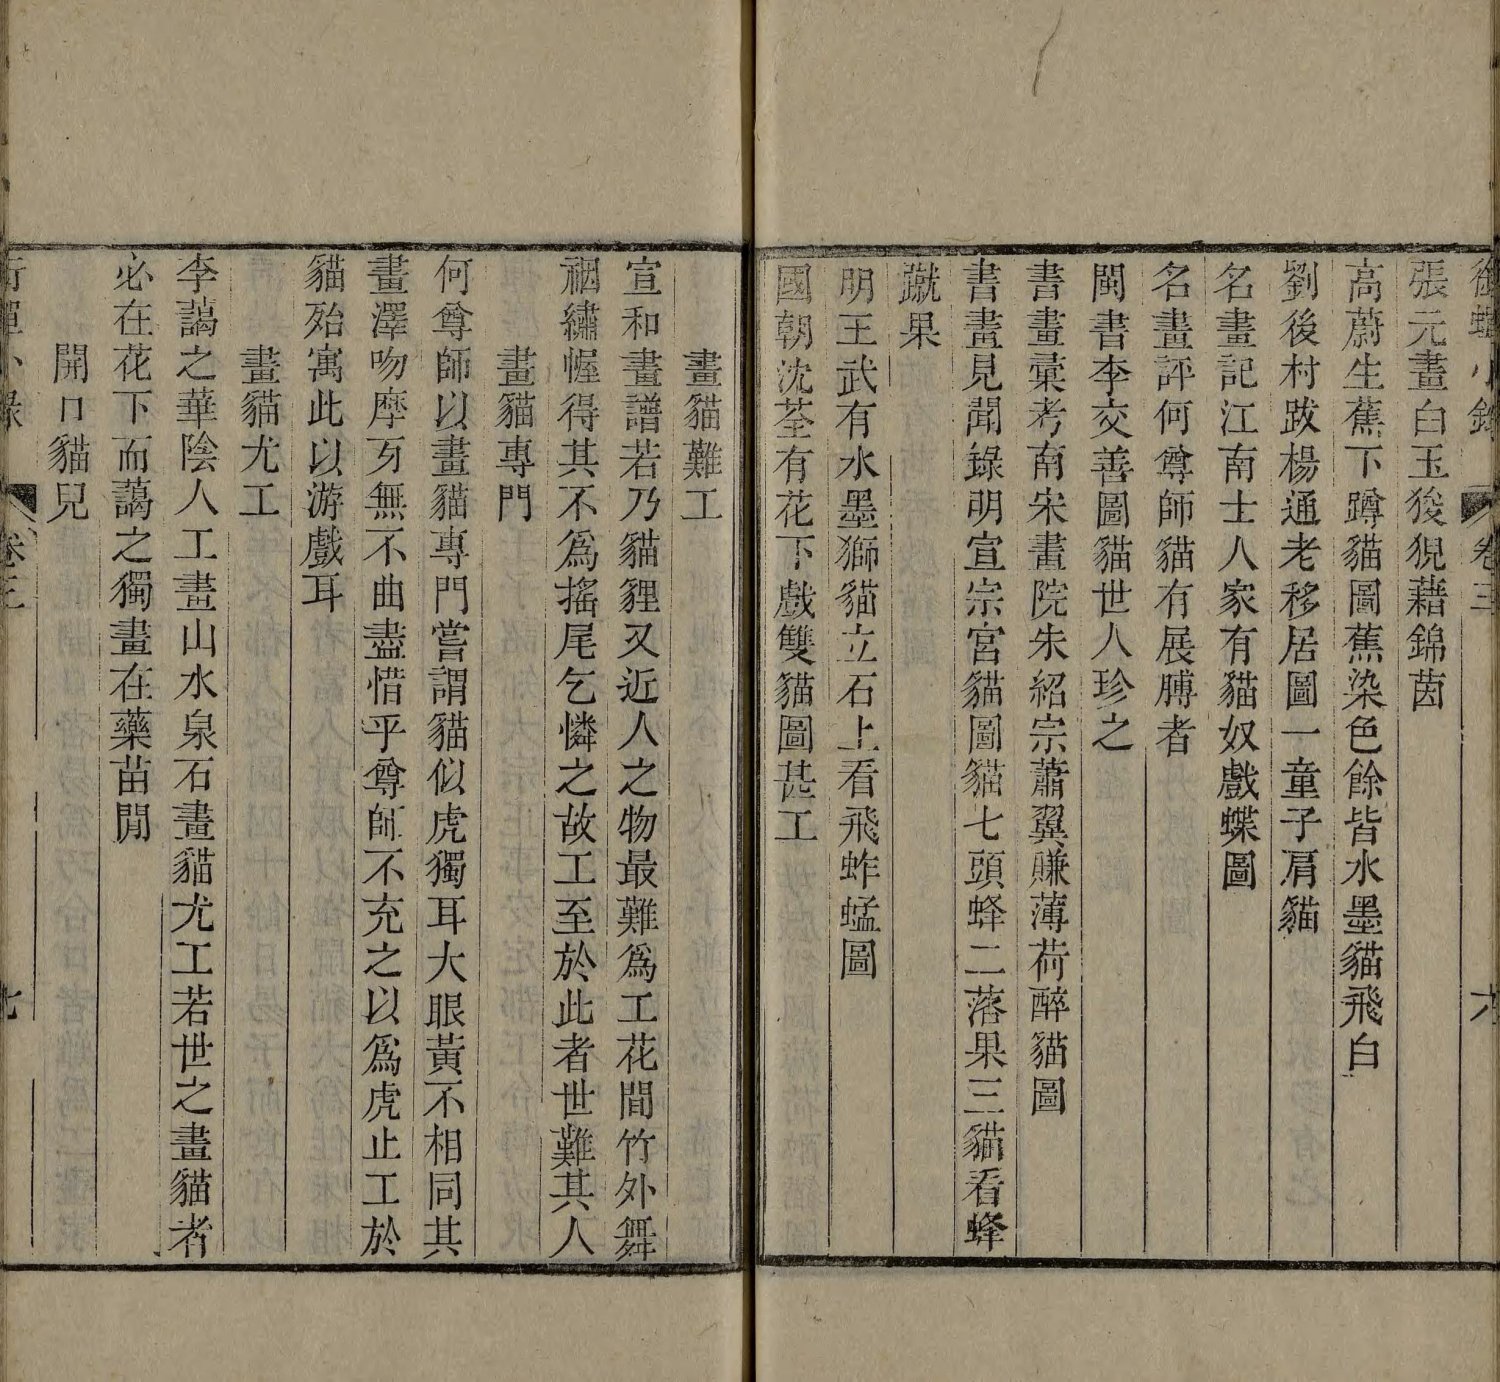 銜蟬小錄 卷三 六
張元畫白玉狻猊藉錦茵
高蔚生蕉下蹲貓圖蕉染色餘皆水墨貓飛白
劉後村跋楊通老移居圖一童子肩貓
名畫記江南士人家有貓奴戲蝶圖
名畫評何尊師貓有展膊者
閩書李交善圖貓世人珍之
書畫彙考南宋畫院朱紹宗蕭翼賺薄荷醉貓圖
書畫見聞錄明宣宗宮貓圖貓七頭蜂二落果三貓看蜂
蹴果
明王武有水墨獅貓立石上看飛蚱蜢圖
國朝沈荃有花下戲雙貓圖甚工
畫貓難工
宣和畫譜若乃貓貍又近人之物最難爲工花間竹外舞
裀繡幄得其不爲搖尾乞憐之故工至於此者世難其人
畫貓專門
何尊師以畫貓專門嘗謂貓似虎獨耳大眼黃不相同其
畫澤吻摩牙無不曲盡惜乎尊師不充之以爲虎止工於
貓殆寓此以游戲耳
畫貓尤工
李藹之華陰人工畫山水泉石畫貓尤工若世之畫貓者
必在花下而藹之獨畫在藥苗閒
開口貓兒
銜蟬小錄 卷三 七